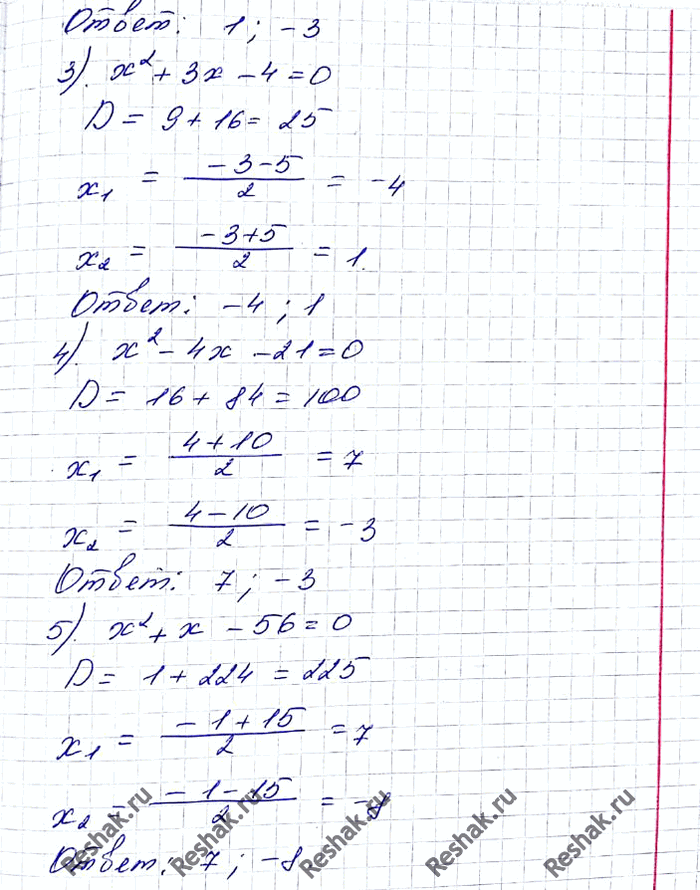 Ответ: 1; -3
3). x² + 3x - 4 = 0
D = 9 + 16 = 25
x₁ = (-3-5)/2 = -4
x₂ = (-3+5)/2 = 1.
Ответ: -4; 1
4). x² - 4x - 21 = 0
D = 16 + 84 = 100
x₁ = (4+10)/2 = 7
x₂ = (4-10)/2 = -3
Ответ: 7; -3
5). x² + x - 56 = 0
D = 1 + 224 = 225
x₁ = (-1+15)/2 = 7
x₂ = (-1-15)/2 = -8
Ответ: 7; -8
Reshak.ru Reshak.ru Reshak.ru Reshak.ru Reshak.ru